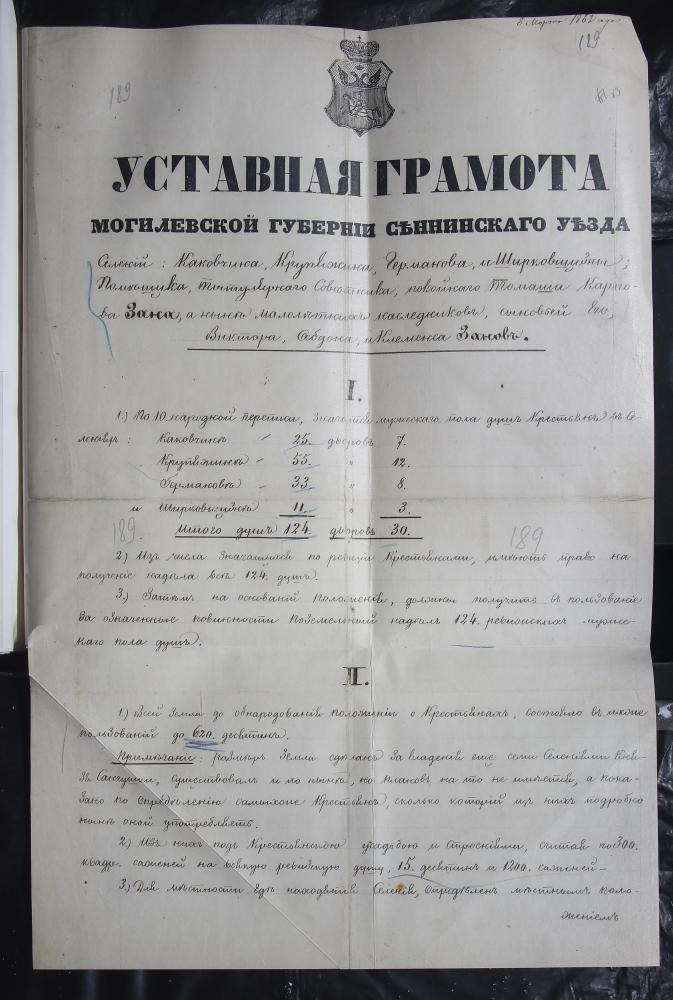 8 Марта 1862 года
189
189
УСТАВНАЯ ГРАМОТА
МОГИЛЕВСКОЙ ГУБЕРНІИ СѢННИНСКАГО УѢЗДА
Селеній: Каковчина, Крупѣнина, Германова, и Ширковщизны;
Помѣщика, Титулярнаго Совѣтника, покойнаго Томаша Карло-
ва Зана, а нынѣ малолѣтныхъ наслѣдниковъ, сыновей Его,
Виктора, Абдона, и Клеменса Зановъ.
I.
1.) По 10. народной переписи, значится мужескаго пола душъ Крестьянъ въ Се-
леніяхъ: Каковчинѣ 25. дворовъ 7.
55. " 12.
Германовѣ 33. " 8.
и 11. " 3.
Итого душъ 124. дворовъ 30.
189. 189
2.) Изъ числа значащихся по ревизіи Крестьянами, имѣютъ право на
полученіе надѣла всѣ 124. душъ.
3.) Затѣмъ на основаніи Положенія, должны получить въ пользованіе
за означенные повинности поземельный надѣлъ 124. ревизскихъ муже-
скаго пола душъ.
II.
1.) Всей земли до обнародованія положенія о Крестьянахъ, состояло въ ихъ
пользованіи до 620. десятинъ.
Примѣчаніе: размѣръ земли сдѣланъ за владенія еще сими Селеніями Кня-
зѣ Сангушки, существовалъ и по нынѣ, но плановъ на то не имѣется, а пока-
зано по опредѣленію самихъ Крестьянъ, сколько которой изъ нихъ подробно
нынѣ оной употребляетъ.
2.) Изъ нихъ подъ Крестьянскою усадьбою и строеніями, считая по 300.
квадр. саженей на всякую ревизскую душу, 15. десятинъ и 1200. саженей
3.) Для мѣстности гдѣ находятся Селенія, опредѣленъ мѣстнымъ поло-
женіемъ